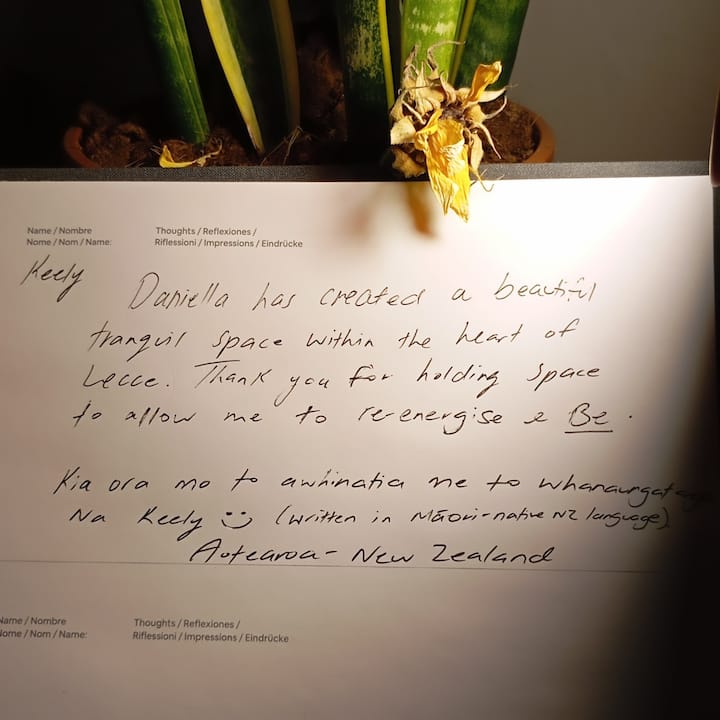 Name / Nombre
Nome / Nom / Name:
Thoughts / Reflexiones /
Riflessioni / Impressions / Eindrücke
Keely
Daniella has created a beautiful
tranquil space within the heart of
Lecce. Thank you for holding space
to allow me to re-energise & Be.
Kia ora mo to awhinatia me to whanaungatanga
Na Keely :) (written in Māori-native NZ language)
Aotearoa - New Zealand
Name / Nombre
Nome / Nom / Name:
Thoughts / Reflexiones /
Riflessioni / Impressions / Eindrücke